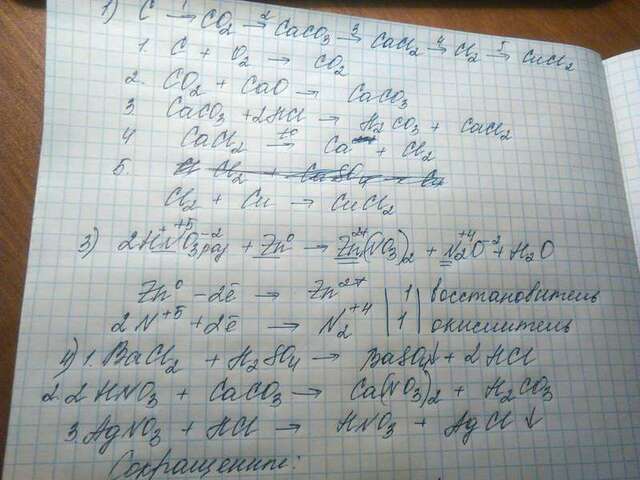 1) C →¹ CO₂ →² CaCO₃ →³ CaCl₂ →⁴ Cl₂ →⁵ CuCl₂
1. C + O₂ → CO₂
2. CO₂ + CaO → CaCO₃
3. CaCO₃ + 2HCl → H₂CO₃ + CaCl₂
4 CaCl₂ →t° Ca + Cl₂
5.
Cl₂ + Cu → CuCl₂
3) 2H⁺N⁺⁵O₃⁻² раз + Zn⁰ → Zn²⁺(NO₃)₂ + N₂⁺⁴O⁻² + H₂O
Zn⁰ - 2ē → Zn²⁺ | 1 | восстановитель
2N⁺⁵ + 2ē → N₂⁺⁴ | 1 | окислитель
4) 1. BaCl₂ + H₂SO₄ → BaSO₄↓ + 2HCl
2. 2HNO₃ + CaCO₃ → Ca(NO₃)₂ + H₂CO₃
3. AgNO₃ + HCl → HNO₃ + AgCl↓